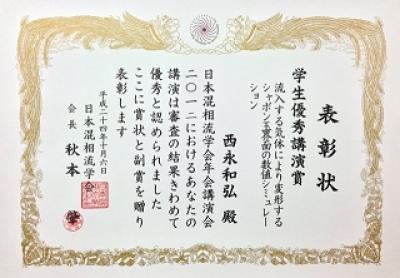 表彰状
学生優秀講演賞
流入する気体により変形する
シャボン玉裏面の数値シミュレー
ション
西永和弘 殿
日本混相流学会年会講演会
二〇一二におけるあなたの
講演は審査の結果きわめて
優秀と認められました
ここに賞状と副賞を贈り
表彰します
平成二十四年十月六日
日本混相流学会
会長 秋本 肇